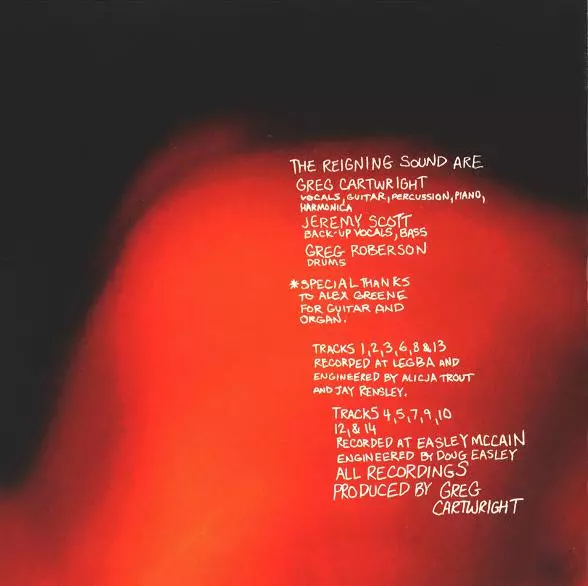 THE REIGNING SOUND ARE
GREG CARTWRIGHT
VOCALS, GUITAR, PERCUSSION, PIANO,
HARMONICA
JEREMY SCOTT
BACK-UP VOCALS, BASS
GREG ROBERSON
DRUMS
*SPECIAL THANKS
TO ALEX GREENE
FOR GUITAR AND
ORGAN.
TRACKS 1,2,3,6,8&13
RECORDED AT LEGBA AND
ENGINEERED BY ALICJA TROUT
AND JAY RENSLEY.
TRACKS 4,5,7,9,10
12,&14
RECORDED AT EASLEY MCCAIN
ENGINEERED BY DOUG EASLEY
ALL RECORDINGS
PRODUCED BY GREG
CARTWRIGHT